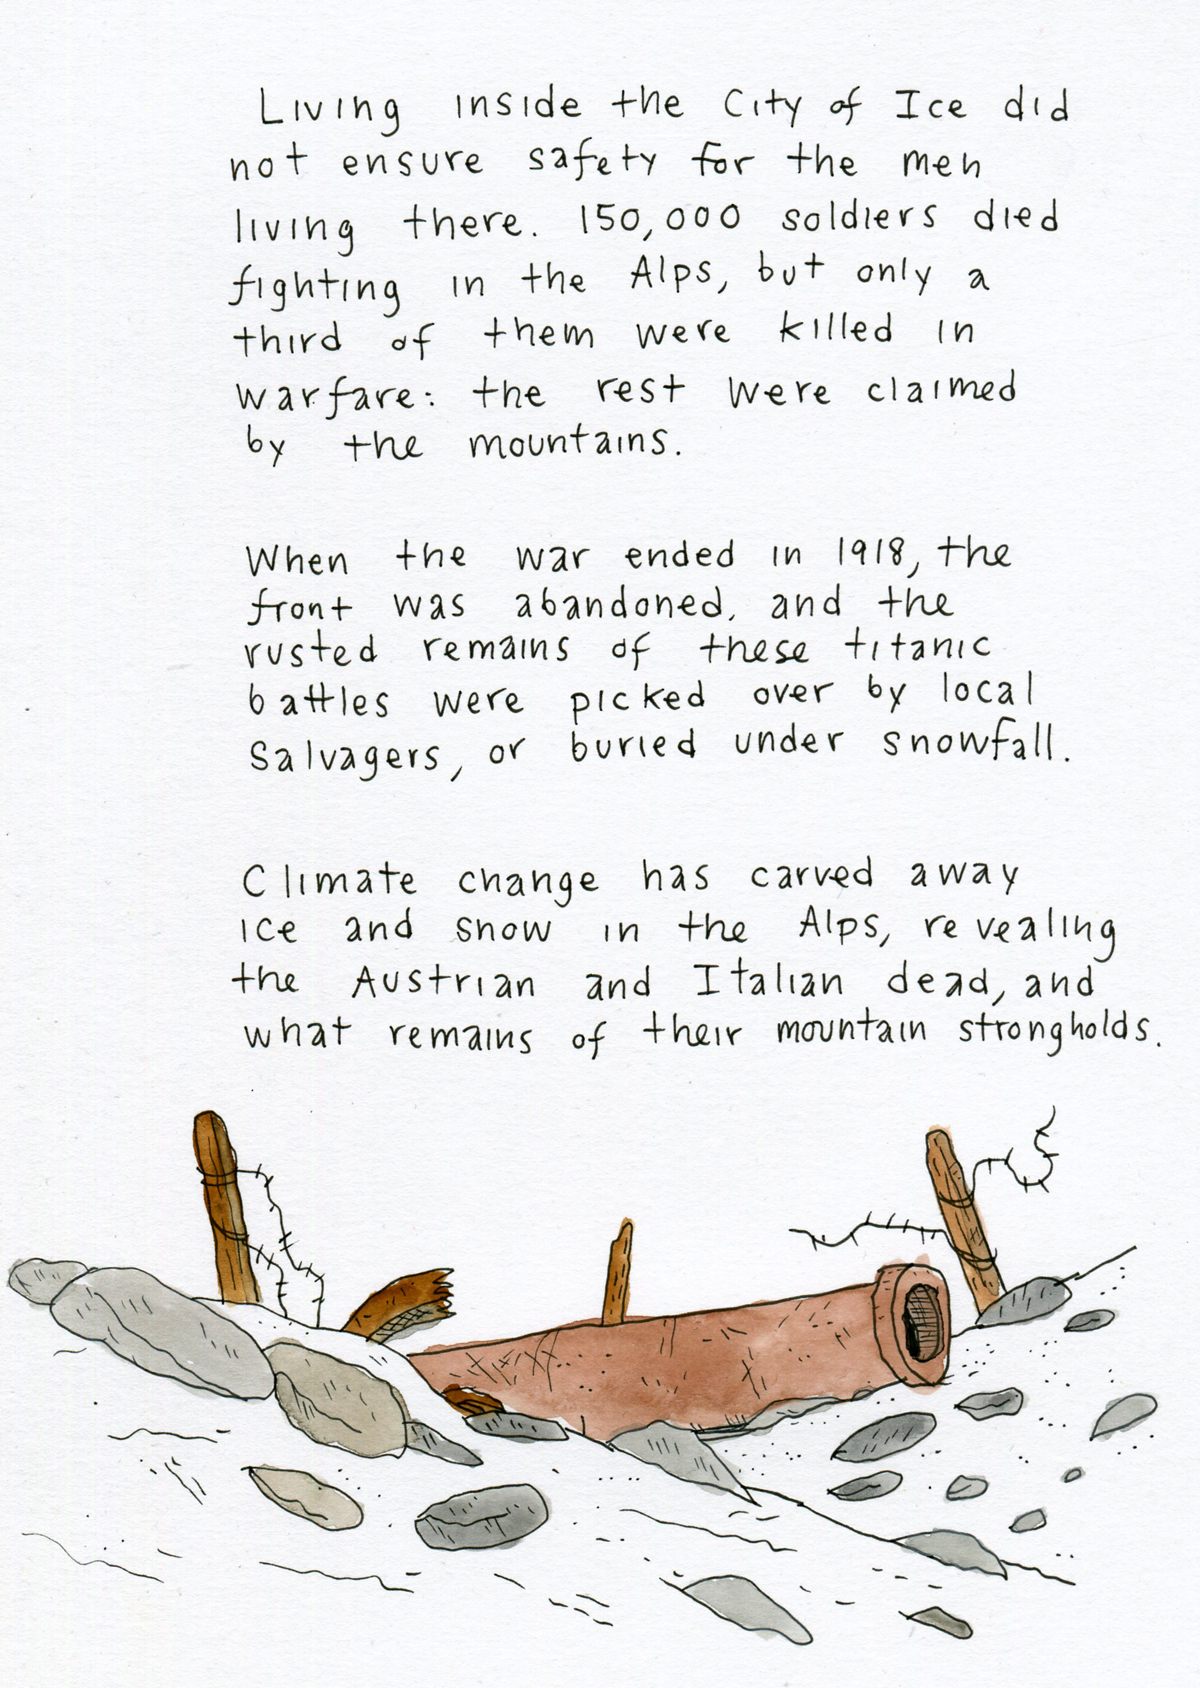 Living inside the City of Ice did
not ensure safety for the men
living there. 150,000 soldiers died
fighting in the Alps, but only a
third of them were killed in
warfare: the rest were claimed
by the mountains.
When the war ended in 1918, the
front was abandoned, and the
rusted remains of these titanic
battles were picked over by local
Salvagers, or buried under snowfall.
Climate change has carved away
ice and snow in the Alps, revealing
the Austrian and Italian dead, and
what remains of their mountain strongholds.